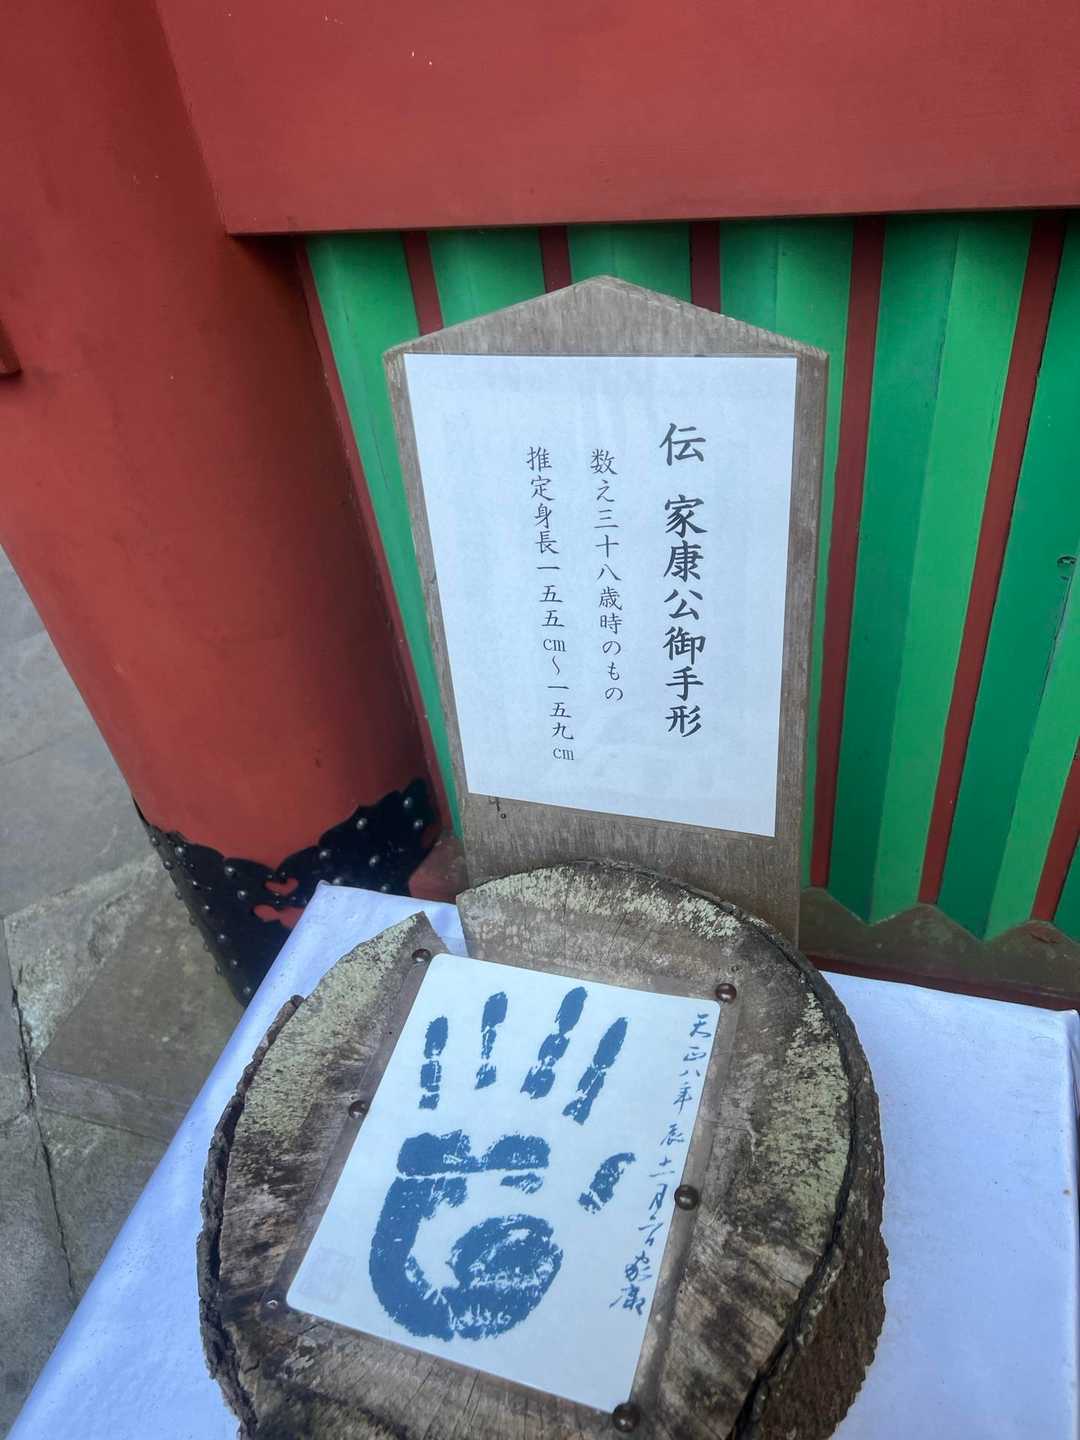 伝 家康公御手形
数え三十八歳時のもの
推定身長一五五㎝～一五九㎝
天正八年辰十一月六日家康